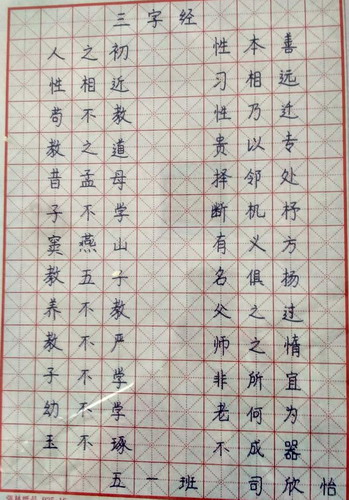 三字经
人之初 性本善
性相近 习相远
苟不教 性乃迁
教之道 贵以专
昔孟母 择邻处
子不学 断机杼
窦燕山 有义方
教五子 名俱扬
养不教 父之过
教不严 师之惰
子不学 非所宜
幼不学 老何为
玉不琢 不成器
五一班 司欣怡